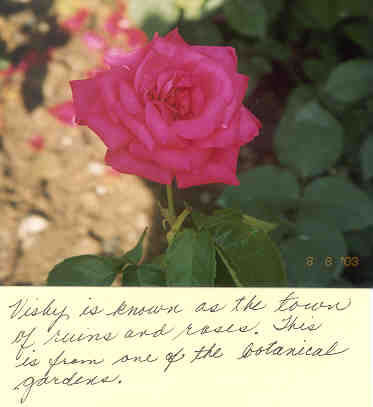 8 8 '03
Visby, is known as the town
of ruins and roses. This
is from one of the botanical
gardens.